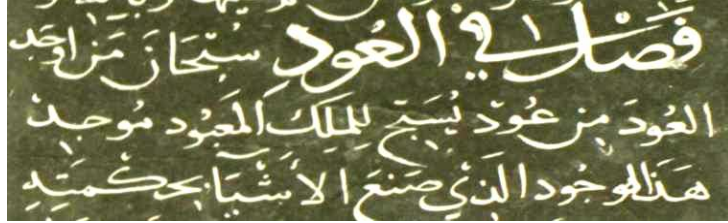 فَصْلٌ فِي العُودِ سُبْحَانَ مَنْ اوجد
العُودَ مِن عُودْ يُسَبِّحُ لِلمَلِكِ المَعبُود مُوجدْ
هَذَا الوجُود الَّذِي صَنَعَ الأَشْيَآ بحِكْمَتِهِ